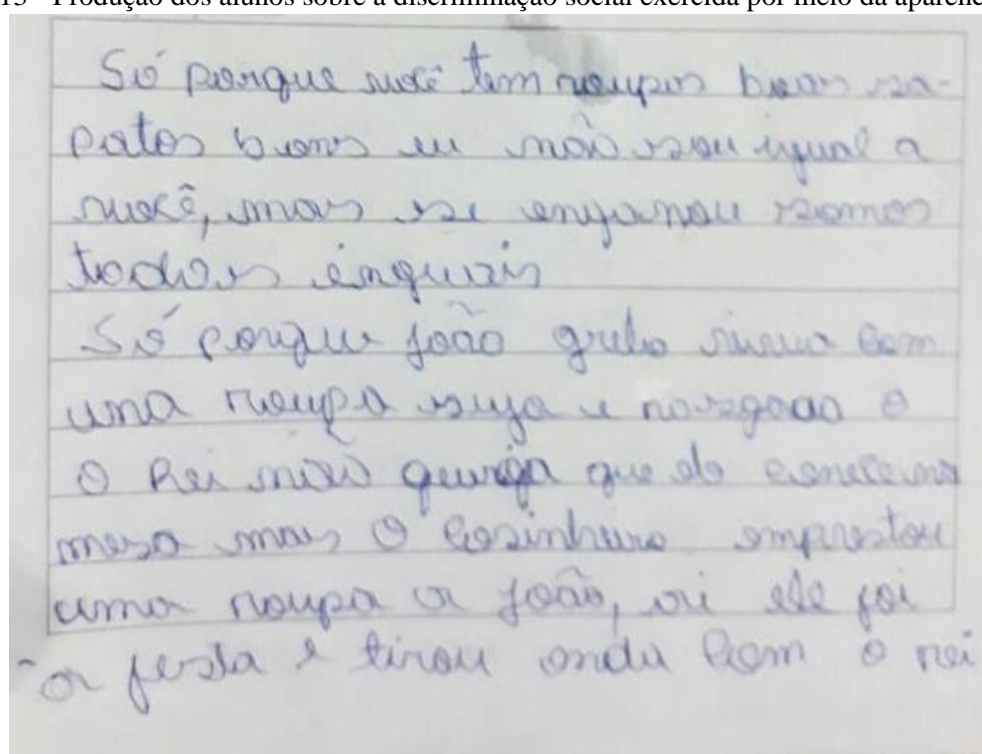 15 - Produção dos alunos sobre a discriminação social exercida por meio da aparênc
Só porque você tem roupas boas sa-
patos bons eu não sou igual a
você, mas se enganou somos
todos inguais
Só porque joão grilo viveu com
uma roupa suja e rasgada e
O Rei não queria que ele
mesa mais o cosinheiro emprestou
uma roupa a joão, ai ele foi
a festa e tirou onda com o rei